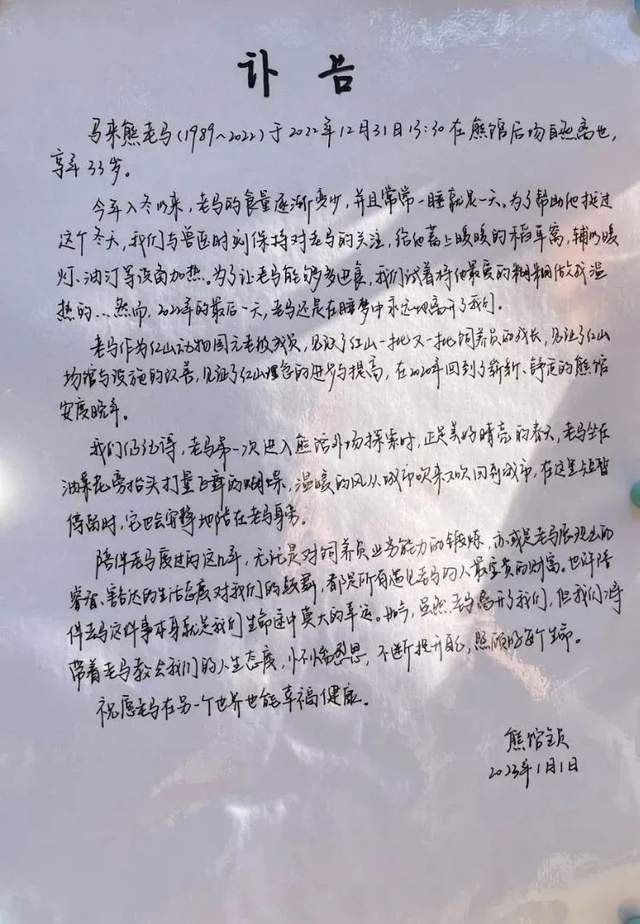 讣 告
马来熊老马(1989~2022)于2022年12月31日13:30在熊馆后场自然离世,
享年33岁。
今年入冬以来,老马的食量逐渐变少,并且常常一睡就是一天。为了帮助他挺过
这个冬天,我们与兽医时刻保持对老马的关注,给他盖上暖暖的稻草窝,辅以暖
灯、油汀等设备加热。为了让老马能够多进食,我们试着将他最爱的糊糊做成温
热的…然而,2022年的最后一天,老马还是在睡梦中永远地离开了我们。
老马作为红山动物园元老级成员,见证了红山一批又一批饲养员的成长,见证了红山
场馆与设施的改善,见证了红山理念的进步与提高,在2020年回到了崭新、舒适的熊馆
安度晚年。
我们仍记得,老马第一次进入熊活外场探索时,正是美好晴亮的春天,老马坐在
油菜花旁抬头打量飞舞的蝴蝶,温暖的风从城市吹来又吹回到城市,在这里短暂
停留时,它也会安静地陪在老马身旁
陪伴老马度过的这几年,无论是对饲养员业务能力的锻炼,亦或是老马展现出的
睿智、豁达的生活态度对我们的鼓舞,都是所有遇见老马的人最宝贵的财富。也许陪
伴老马这件事本身就是我们生命途中莫大的幸运。如今,虽然老马离开了我们,但我们将
带着老马教会我们的人生态度,心怀感恩,不断提升自己,照顾好每个生命。
祝愿老马在另一个世界也能幸福健康。
熊馆全员
2023年1月1日